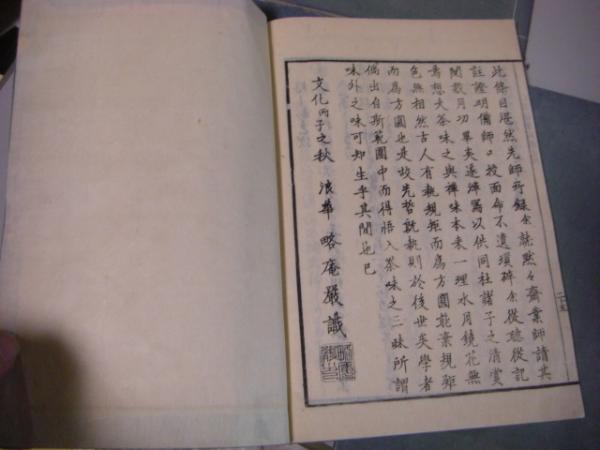 此條目湛然先師所録余就默々齋業師請其
註證明備師口授面命不遺瑣碎余從聴從記
閲数月功畢矣遂繕寫以供同社諸子之清賞
意想夫茶味之與禅味本来一理水月鏡花無
色無相然古人有執規矩而為方圓能棄規矩
而為方圓也是故先哲執則於後世矣學者
偶出自斯範圍中而得悟入茶味之三昧所謂
味外之味可知生乎其間也已
文化丙子之秋 浪華 略庵嚴識